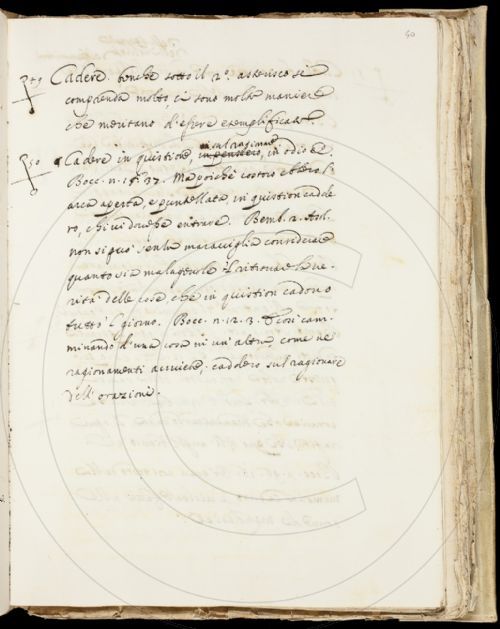 50
p. 49 Cadere. benche sotto il 2º. asterisco si
comprenda molto, ci sono molte maniere
che meritano d'essere esemplificate.
p. 50 Cadere in quistione, in pensiero, in odio &c.
sul ragionare
Bocc. n. 15. 37. Ma poichè costoro ebbero l'
arca aperta, e puntellata, in quistion cadde
ro, chi vi dovesse entrare. Bemb. 2. Asol.
non si può senza maraviglia considerare
quanto sia malagevole il ritrovare la ve-
rità delle cose che in quistion cadono
tutto 'l giorno. Bocc. n. 12. 3. E così cam-
minando d'una cosa in un'altra, come ne'
ragionamenti avviene, cadde ro sul ragionare
dell'orazioni.